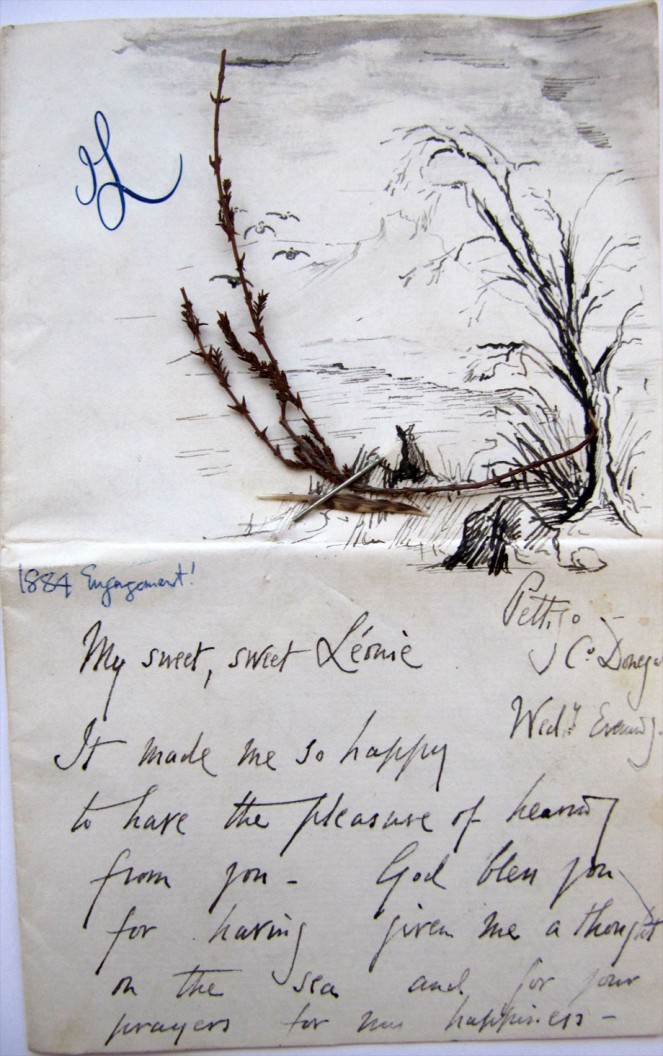 L
1884 Engagement!
Pettigo -
Co. Donega
Wedy. Evening.
My sweet, sweet Léonie
It made me so happy
to have the pleasure of hearing
from you - God bless you
for having given me a thought
on the sea and for your
prayers for my happiness -